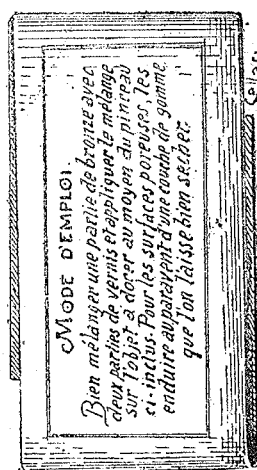 MODE D'EMPLOI
Bien mélanger une partie de bronze avec
deux parties de vernis et appliquer le mélange
sur l'objet à dorer au moyen du pinceau
ci-inclus. Pour les surfaces poreuses, les
enduire auparavant d'une couche de gomme,
que l'on laisse bien sécher.